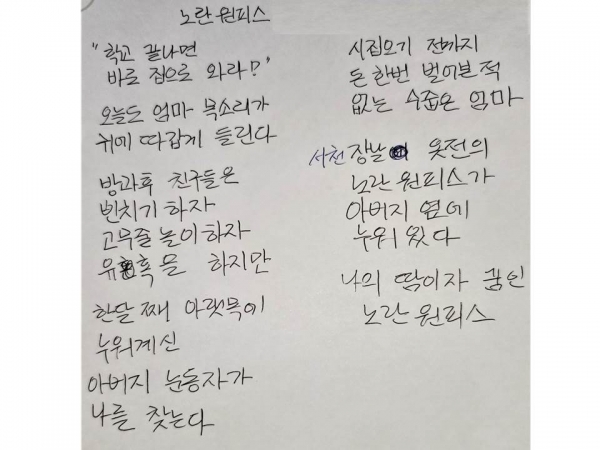 노란원피스
"학교 끝나면
바로 집으로 와라?"
오늘도 엄마 목소리가
귀에 따갑게 들린다
방과후 친구들은
삔치기 하자
고무줄 놀이하자
유혹을 하지만
한달 째 아랫목에
누워계신
아버지 눈동자가
나를 찾는다
시집오기 전까지
돈 한번 벌어본 적
없는 수줍은 엄마
사천 장날 옷전의
노란 원피스가
아버지 옆에
누워 왔다
나의 땀이자 꿈인
노란 원피스